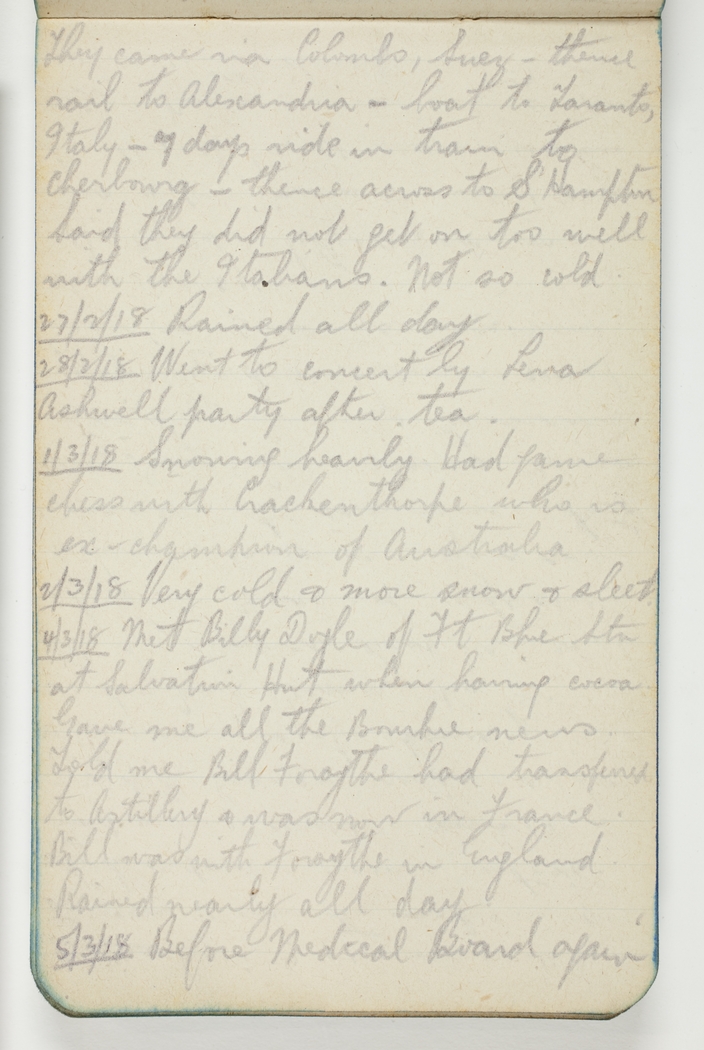 They came via Colombo, Suez - thence
rail to Alexandria - boat to Taranto,
Italy - 7 days ride in train to
Cherbourg - thence across to S'Hampton
Said they did not get on too well
with the Italians. Not so cold.
27/2/18 Rained all day
28/2/18 Went to concert by Lena
Ashwell party after tea.
1/3/18 Snowing heavily Had game
chess with Crackenthorpe who is
ex-champion of Australia
2/3/18 Very cold & more snow & sleet
4/3/18 Met Billy Doyle of Ft
at Salvation Hut when having cocoa.
Gave me all the Bourke news.
Told me Bill Forsythe had transferred
to Artillery & was now in France.
Bill was with Forsythe in England
Rained nearly all day
5/3/18 Before Medical Board again